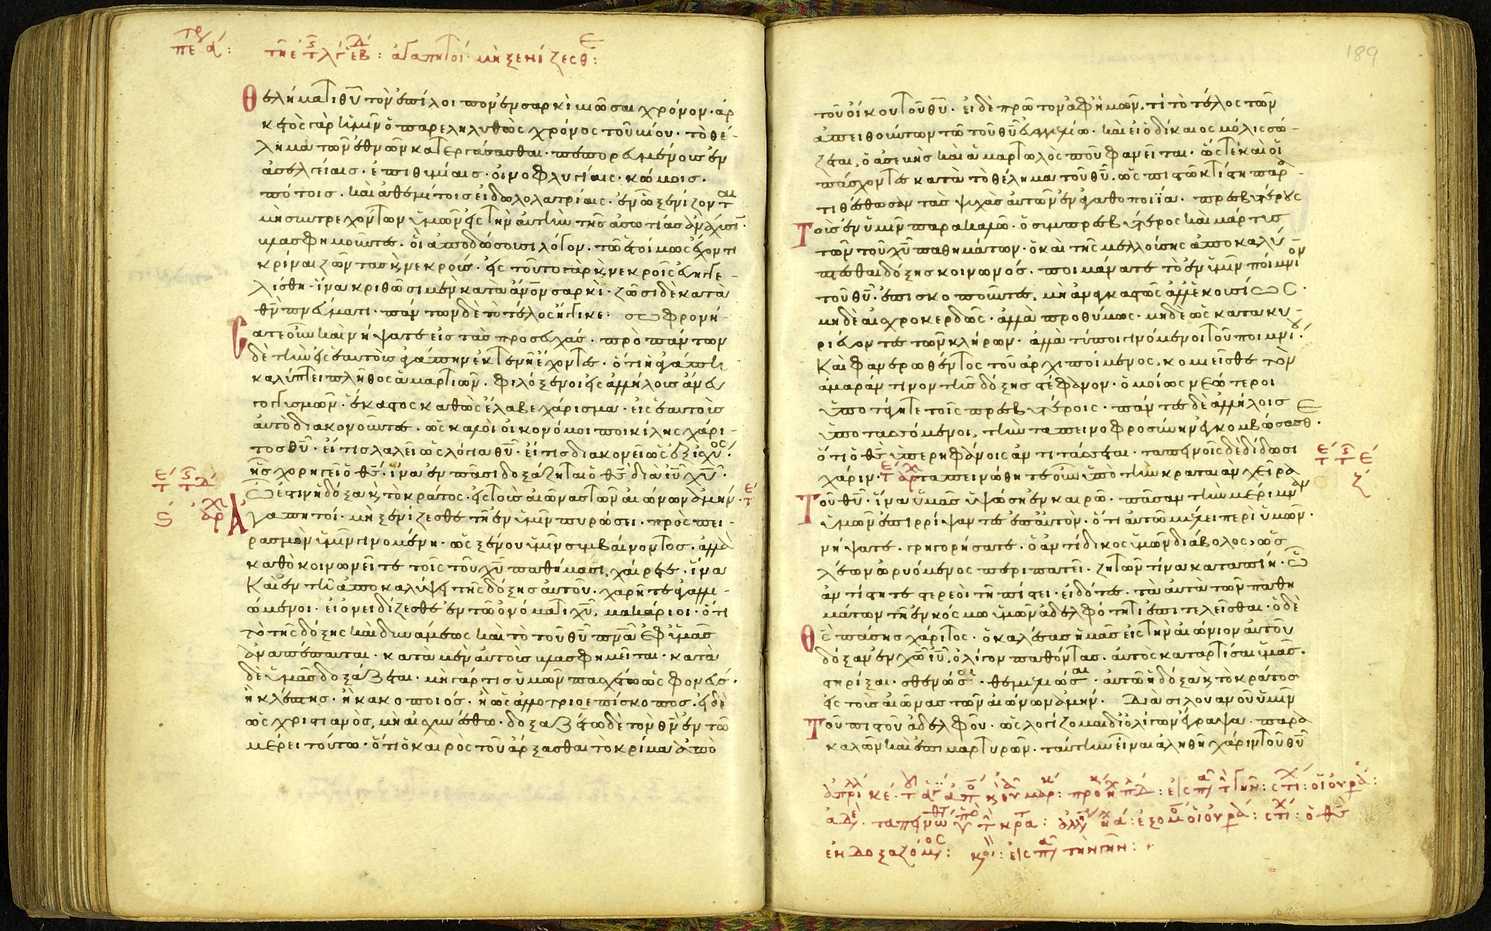 θελήματι θῦ τὸν ἐπίλοιπον ἐν σαρκὶ βιῶσαι χρόνον· ἀρ
κετὸς γὰρ ὑμῖν ὁ παρεληλυθὼς χρόνος τοῦ βίου· τὸ θέ-
λημα τῶν ἐθνῶν κατεργάσασθαι· πεπορευμένους ἐν
ἀσελγείαις· ἐπιθυμίαις· οἰνοφλυγίαις· κώμοις·
πότοις· καὶ ἀθεμίτοις εἰδωλολατρίαις· ἐν ᾧ ξενίζονται
μὴ συντρεχόντων ὑμῶν εἰς τὴν αὐτὴν τῆς ἀσωτίας ἀνάχυσιν·
βλασφημοῦντες· οἳ ἀποδώσουσι λόγον· τῷ ἑτοίμως ἔχοντι
κρῖναι ζῶντας κ νεκρούς· εἰς τοῦτο γὰρ κ νεκροῖς εὐηγγε-
λίσθη· ἵνα κριθῶσι μὲν κατὰ ἀνον σαρκὶ· ζῶσι δὲ κατὰ
θν πνεύματι· πάντων δὲ τὸ τέλος ἤγγικε· σωφρονή-
σατε οὖν καὶ νήψατε εἰς τὰς προσευχάς· πρὸ πάντων
δὲ τὴν εἰς ἑαυτοὺς ἀγάπην ἐκτενῆ ἔχοντες· ὅτι ἡ ἀγάπη
καλύπτει πλῆθος ἁμαρτιῶν· φιλόξενοι εἰς ἀλλήλους ἄνευ
γογγυσμῶν· ἕκαστος καθὼς ἔλαβε χάρισμα· εἰς ἑαυτοὺς
αὐτὸ διακονοῦντες· ὡς καλοὶ οἰκονόμοι ποικίλης χάρι-
τος θυ· εἴ τις λαλεῖ ὡς λόγια θυ· εἴ τις διακονεῖ ὡς ἐξ ἰσχύος·
ἧς χορηγεῖ ὁ θς· ἵνα ἐν πᾶσι δοξάζηται ὁ θς διὰ ιυ χυ·
ᾧ ἐστιν ἡ δόξα κ τὸ κράτος· εἰς τοὺς αἰῶνας τῶν αἰώνων ἀμήν·
Ἀγαπητοί· μὴ ξενίζεσθε τῇ ἐν ὑμῖν πυρώσει· πρὸς πει-
ρασμὸν ὑμῖν γινομένῃ· ὡς ξένου ὑμῖν συμβαίνοντος· ἀλλὰ
καθὸ κοινωνεῖτε τοῖς τοῦ χυ παθήμασι, χαίρετε· ἵνα
καὶ ἐν τῇ ἀποκαλύψει τῆς δόξης αὐτοῦ· χαρῆτε ἀγαλλι-
ώμενοι· εἰ ὀνειδίζεσθε ἐν τῷ ὀνόματι χυ, μακάριοι· ὅτι
τὸ τῆς δόξης καὶ δυνάμεως καὶ τὸ τοῦ θυ πνα ἐφ' ὑμᾶς
ἀναπέπαυται· κατὰ μὲν αὐτοὺς βλασφημεῖται· κατὰ
δὲ ὑμᾶς δοξάζεται· μὴ γάρ τις ὑμῶν πασχέτω ὡς φονεύς·
ἢ κλέπτης· ἢ κακοποιός· ἢ ὡς ἀλλοτριοεπίσκοπος· εἰ δὲ
ὡς χριστιανὸς, μὴ αἰσχυνέσθω· δοξαζέτω δὲ τὸν θν ἐν τῷ
μέρει τούτῳ· ὅτι ὁ καιρὸς τοῦ ἄρξασθαι τὸ κρίμα ἀπὸ
189
τοῦ οἴκου τοῦ θυ· εἰ δὲ πρῶτον ἀφ' ἡμῶν, τί τὸ τέλος τῶν
ἀπειθούντων τῷ τοῦ θυ εὐαγγελίῳ· καὶ εἰ ὁ δίκαιος μόλις σώ-
ζεται, ὁ ἀσεβὴς καὶ ἁμαρτωλὸς ποῦ φανεῖται· ὥστε καὶ οἱ
πάσχοντες κατὰ τὸ θέλημα τοῦ θυ, ὡς πιστῷ κτίστῃ παρα-
τιθέσθωσαν τὰς ψυχὰς αὐτῶν ἐν ἀγαθοποιΐᾳ· πρεσβυτέρους
τοὺς ἐν ὑμῖν παρακαλῶ· ὁ συμπρεσβύτερος καὶ μάρτυς
τῶν τοῦ χυ παθημάτων· ὁ καὶ τῆς μελλούσης ἀποκαλύ-
πτεσθαι δόξης κοινωνός· ποιμάνατε τὸ ἐν ὑμῖν ποίμνιον
τοῦ θυ· ἐπισκοποῦντες, μὴ ἀναγκαστῶς ἀλλ' ἑκουσίως·
μηδὲ αἰσχροκερδῶς· ἀλλὰ προθύμως· μηδὲ ὡς κατακυ-
ριεύοντες τῶν κλήρων· ἀλλὰ τύποι γινόμενοι τοῦ ποιμνίου·
καὶ φανερωθέντος τοῦ ἀρχιποίμενος, κομιεῖσθε τὸν
ἀμαράντινον τῆς δόξης στέφανον· ὁμοίως νεώτεροι
ὑποτάγητε τοῖς πρεσβυτέροις· πάντες δὲ ἀλλήλοις
ὑποτασσόμενοι, τὴν ταπεινοφροσύνην ἐγκομβώσασθε·
ὅτι ὁ θς ὑπερηφάνοις ἀντιτάσσεται· ταπεινοῖς δὲ δίδωσι
χάριν· ταπεινώθητε οὖν ὑπὸ τὴν κραταιὰν χεῖρα
τοῦ θυ· ἵνα ὑμᾶς ὑψώσῃ ἐν καιρῷ· πᾶσαν τὴν μέριμναν
ὑμῶν ἐπιρρίψαντες ἐπ' αὐτὸν· ὅτι αὐτῷ μέλει περὶ ὑμῶν·
νήψατε· γρηγορήσατε· ὁ ἀντίδικος ὑμῶν διάβολος, ὡς
λέων ὠρυόμενος περιπατεῖ· ζητῶν τίνα καταπίῃ· ᾧ
ἀντίστητε στερεοὶ τῇ πίστει· εἰδότες· τὰ αὐτὰ τῶν παθη-
μάτων τῇ ἐν κόσμῳ ὑμῶν ἀδελφότητι ἐπιτελεῖσθαι· ὁ δὲ
θς πάσης χάριτος· ὁ καλέσας ἡμᾶς εἰς τὴν αἰώνιον αὐτοῦ
δόξαν ἐν χω ιυ, ὀλίγον παθόντας· αὐτὸς καταρτίσαι ὑμᾶς·
στηρίξαι· σθενώσαι· θεμελιώσαι· αὐτῷ ἡ δόξα κ τὸ κράτος
εἰς τοὺς αἰῶνας τῶν αἰώνων ἀμήν· Διὰ σιλουανοῦ ὑμῖν
τοῦ πιστοῦ ἀδελφοῦ· ὡς λογίζομαι δι' ὀλίγων ἔγραψα· παρα-
καλῶν καὶ ἐπιμαρτυρῶν· ταύτην εἶναι ἀληθῆ χάριν τοῦ θυ